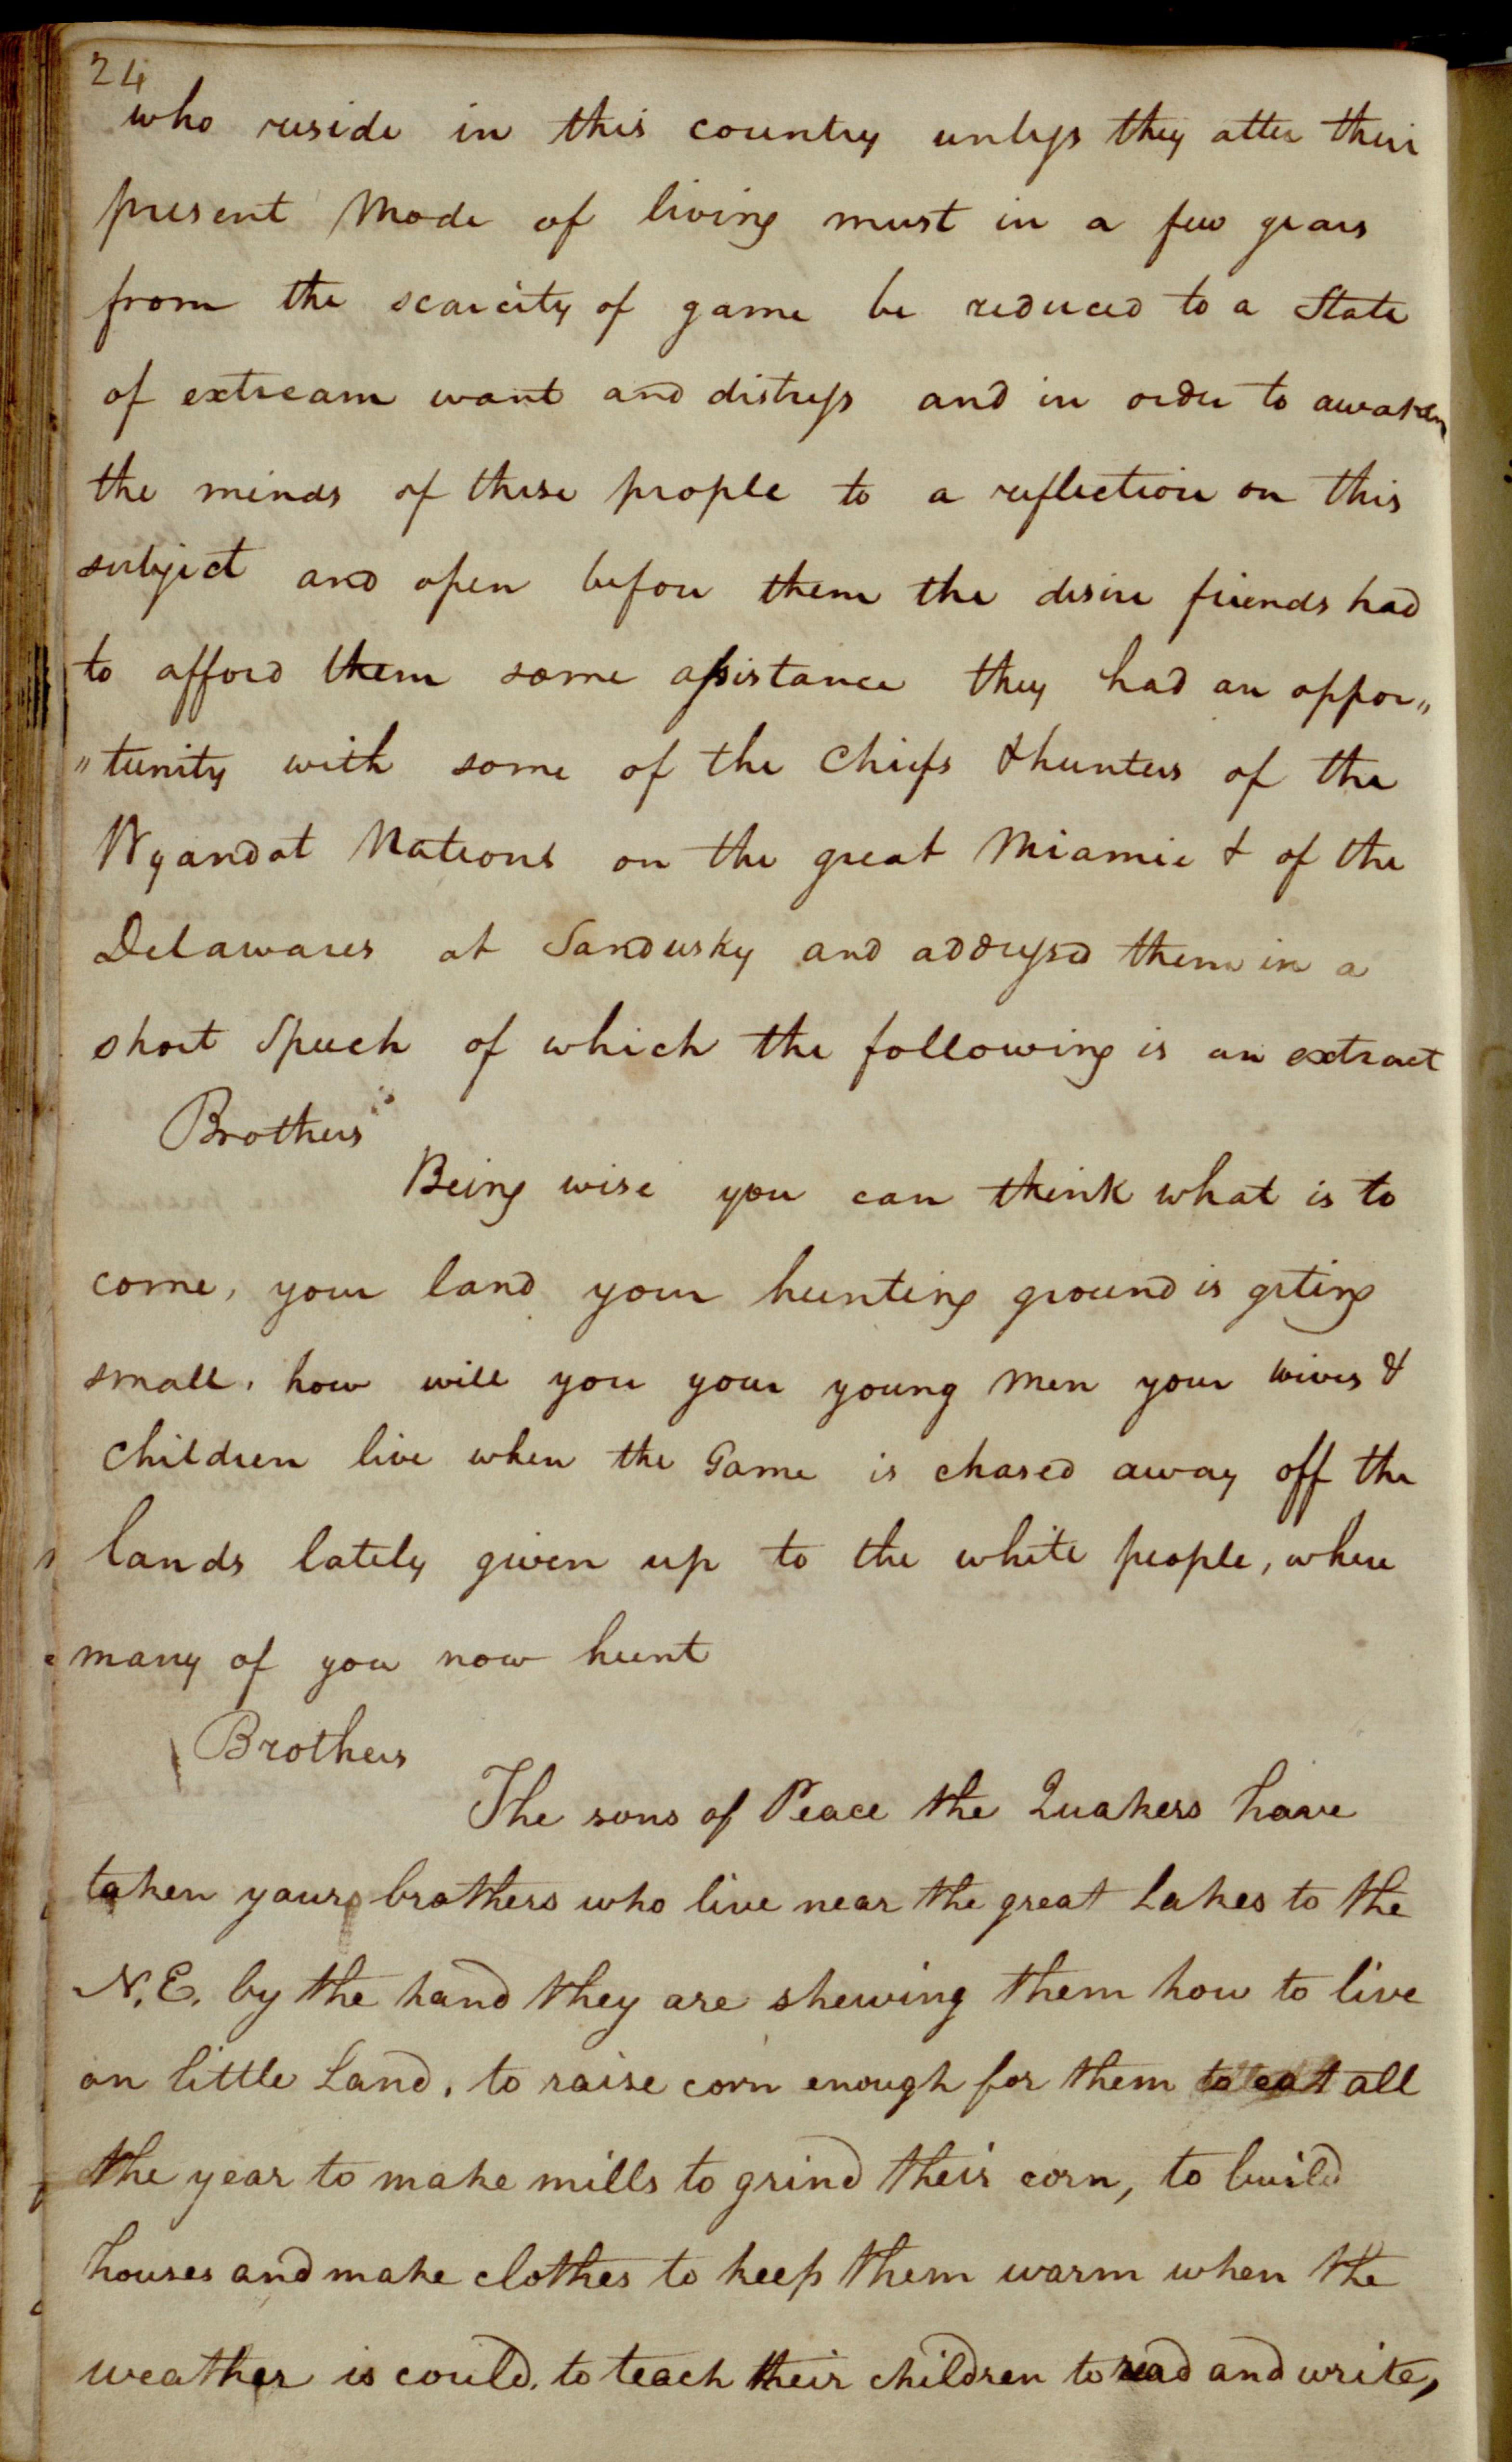 24
who reside in this country unless they alter their
present Mode of living must in a few years
from the scarcity of game be reduced to a State
of extream want and distress and in order to awaken
the minds of these people to a reflection on this
subject and open before them the desire friends had
to afford them some assistance they had an oppor„
„tunity with some of the Chiefs & hunters of the
Wyandot Nations on the great Miamie & of the
Delawares at Sandusky and addressd them in a
short Speech of which the following is an extract
Brothers
Being wise you can think what is to
come, your land your hunting ground is geting
small, how will you your young men your wives &
Children live when the Game is chased away off the
lands lately given up to the white people, where
many of you now hunt
Brothers
The sons of Peace the Quakers have
taken your brothers who live near the great Lakes to the
N.E. by the hand they are shewing them how to live
on little Land, to raise corn enough for them to eat all
the year to make mills to grind their corn, to build
houses and make clothes to keep them warm when the
weather is could, to teach their children to read and write,